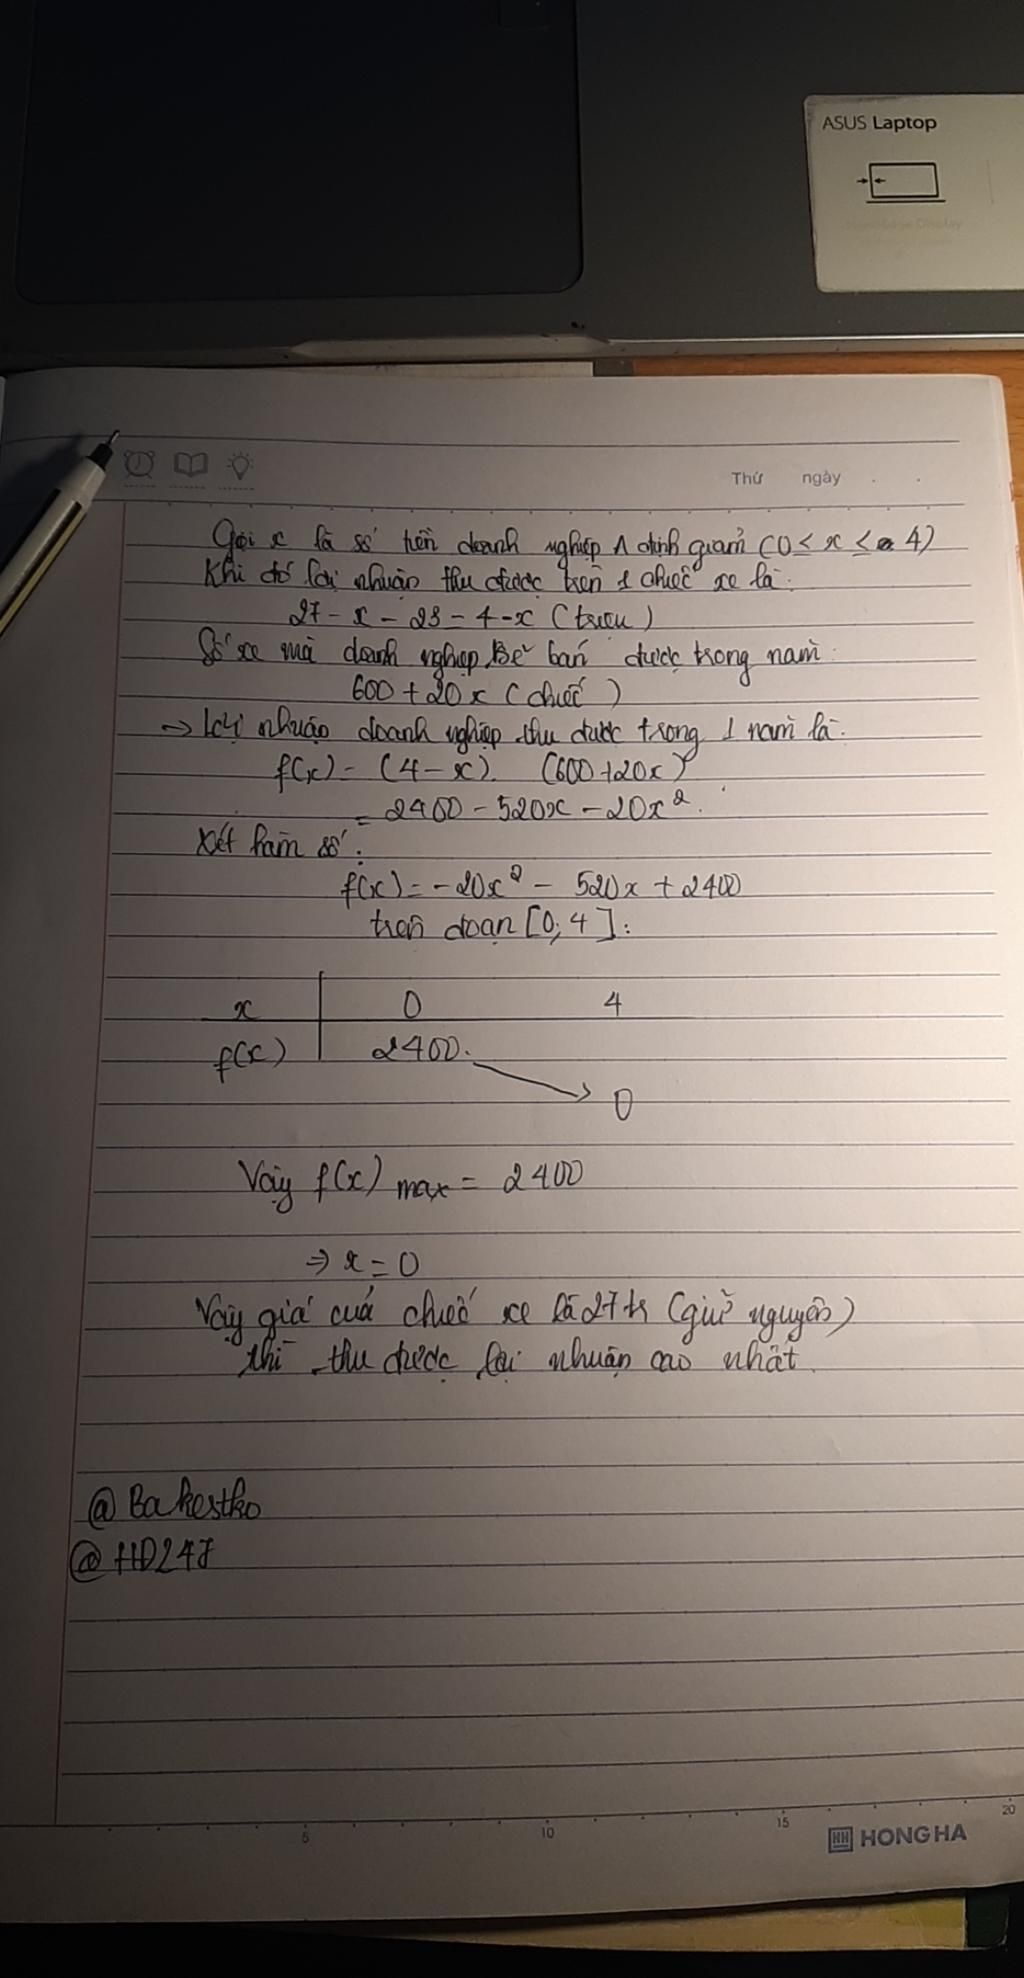 ASUS Laptop
Thứ ngày
Gọi x là số tiền doanh nghiệp A định giảm (0 ≤ x ≤ 4)
Khi đó lợi nhuận thu được trên 1 chiếc xe là:
27 - x - 23 = 4 - x (triệu)
Số xe mà doanh nghiệp sẽ bán được trong năm:
600 + 20x (chiếc)
→ Lợi nhuận doanh nghiệp thu được trong 1 năm là:
f(x) = (4 - x). (600 + 20x)
= 2400 - 520x - 20x²
Xét hàm số:
f(x) = -20x² - 520x + 2400
trên đoạn [0; 4]:
x 0 4
f(x) 2400
0
Vậy f(x) max = 2400
⇒ x = 0
Vậy giá của chiếc xe là 27 tr (giữ nguyên)
thì thu được lợi nhuận cao nhất
@Bakestko
@HD247
5 10 15 20
HH HONG HA